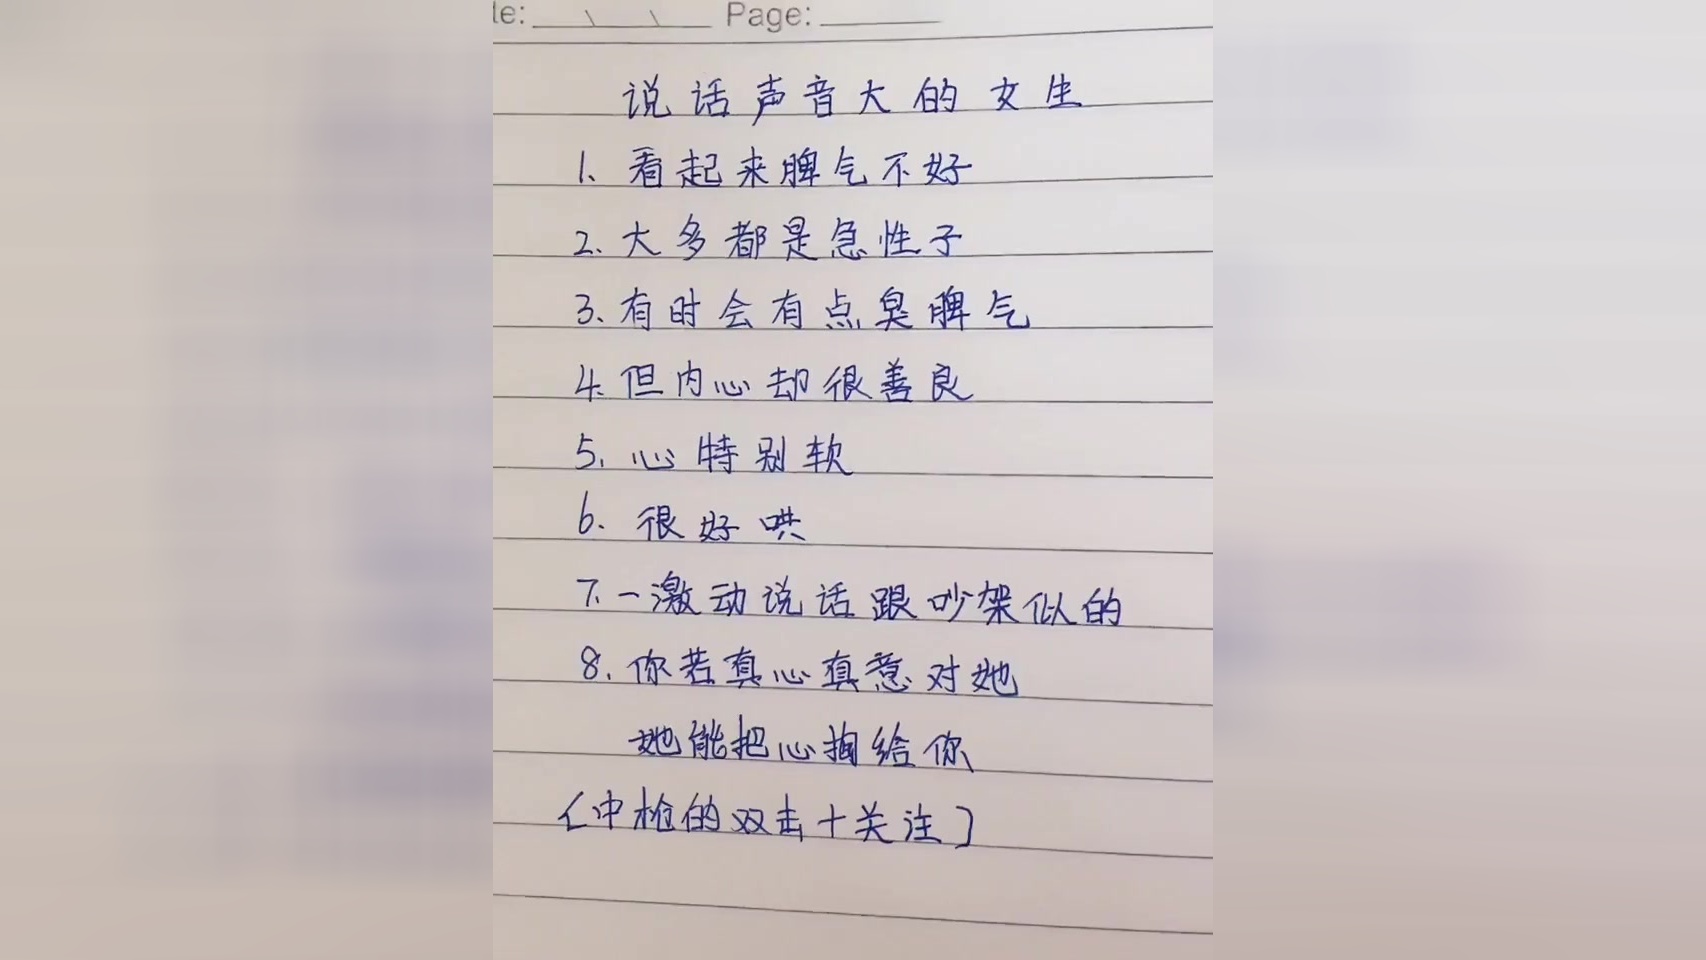 te: Page:
说话声音大的女生
1、看起来脾气不好
2、大多都是急性子
3、有时会有点臭脾气
4、但内心却很善良
5、心特别软
6、很好哄
7、一激动说话跟吵架似的
8、你若真心真意对她
她能把心掏给你
(中枪的双击十关注]